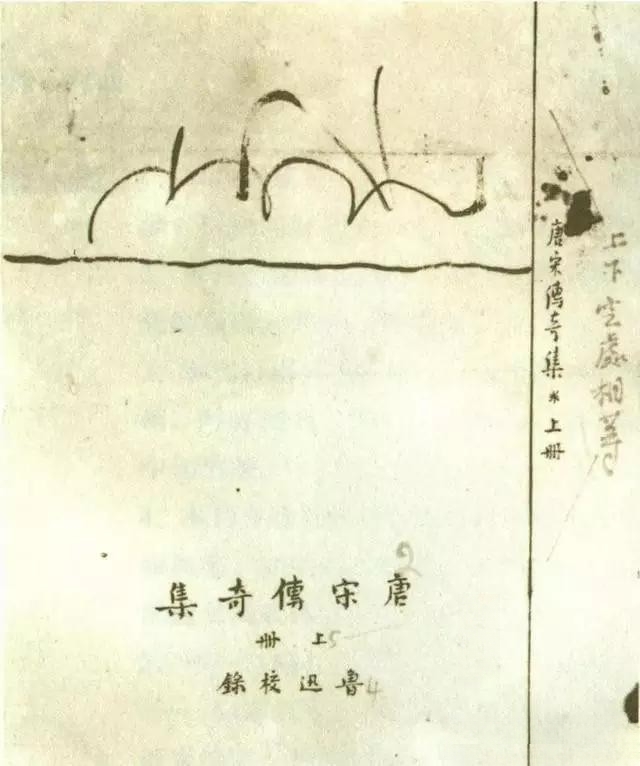 唐宋傳奇集
上册
魯迅校錄
唐宋傳奇集 上册
上下空處相等
2
5
4